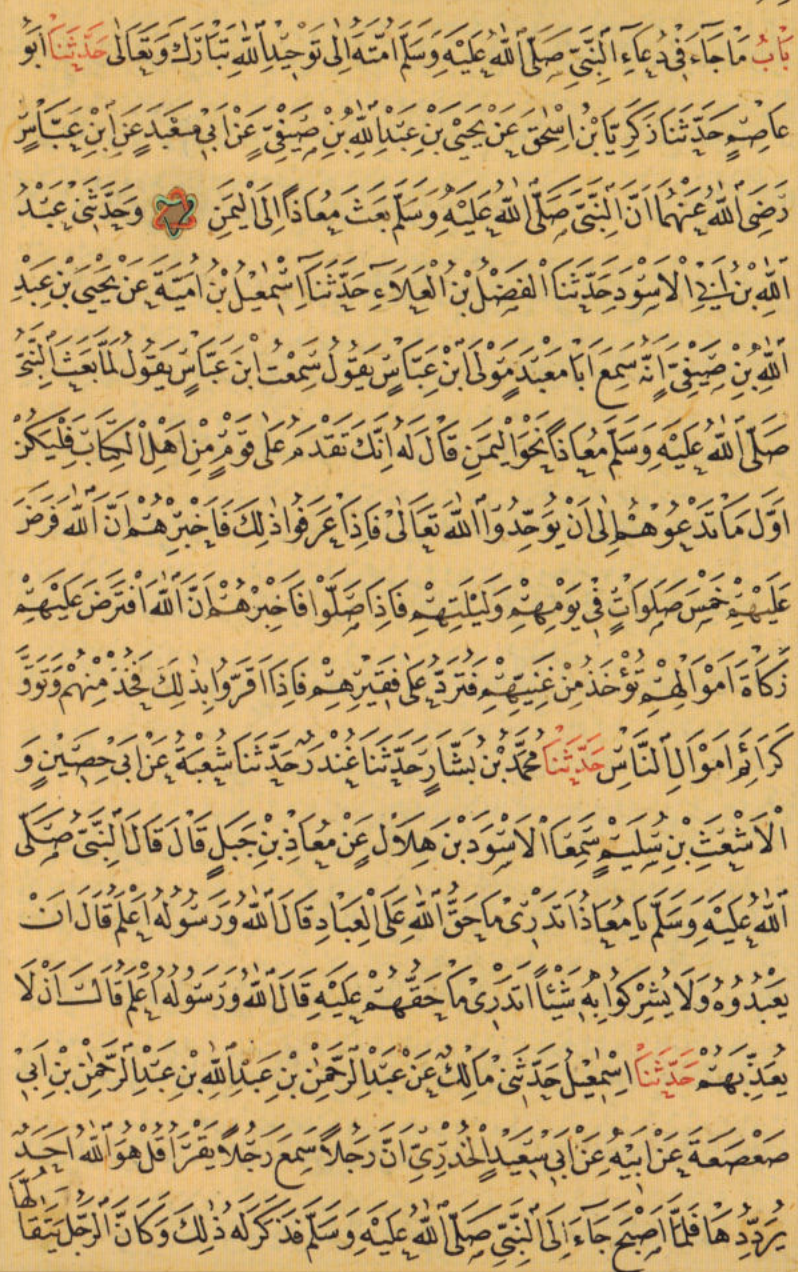 بَابُ مَا جَاءَ فِي دُعَاءِ النَّبِيِّ صَلَّى اللّٰهُ عَلَيْهِ وَسَلَّمَ اُمَّتَهُ اِلٰى تَوْحِيْدِ اللّٰهِ تَبَارَكَ وَتَعَالٰى حَدَّثَنَا اَبُو
عَاصِمٍ حَدَّثَنَا زَكَرِيَّا بْنُ اِسْحٰقَ عَنْ يَحْيَى بْنِ عَبْدِ اللّٰهِ بْنِ صَيْفِيٍّ عَنْ اَبِي مَعْبَدٍ عَنِ ابْنِ عَبَّاسٍ
رَضِيَ اللّٰهُ عَنْهُمَا اَنَّ النَّبِيَّ صَلَّى اللّٰهُ عَلَيْهِ وَسَلَّمَ بَعَثَ مُعَاذًا اِلَى الْيَمَنِ وَحَدَّثَنِي عَبْدُ
اللّٰهِ بْنُ اَبِي الْاَسْوَدِ حَدَّثَنَا الْفَضْلُ بْنُ الْعَلَاءِ حَدَّثَنَا اِسْمٰعِيْلُ بْنُ اُمَيَّةَ عَنْ يَحْيَى بْنِ عَبْدِ
اللّٰهِ بْنِ صَيْفِيٍّ اَنَّهُ سَمِعَ اَبَا مَعْبَدٍ مَوْلَى ابْنِ عَبَّاسٍ يَقُولُ سَمِعْتُ ابْنَ عَبَّاسٍ يَقُولُ لَمَّا بَعَثَ النَّبِيُّ
صَلَّى اللّٰهُ عَلَيْهِ وَسَلَّمَ مُعَاذًا نَحْوَ الْيَمَنِ قَالَ لَهُ اِنَّكَ تَقْدَمُ عَلٰى قَوْمٍ مِنْ اَهْلِ الْكِتَابِ فَلْيَكُنْ
اَوَّلَ مَا تَدْعُوْهُمْ اِلٰى اَنْ يُوَحِّدُوا اللّٰهَ تَعَالٰى فَاِذَا عَرَفُوا ذٰلِكَ فَاَخْبِرْهُمْ اَنَّ اللّٰهَ فَرَضَ
عَلَيْهِمْ خَمْسَ صَلَوَاتٍ فِي يَوْمِهِمْ وَلَيْلَتِهِمْ فَاِذَا صَلَّوْا فَاَخْبِرْهُمْ اَنَّ اللّٰهَ افْتَرَضَ عَلَيْهِمْ
زَكَاةَ اَمْوَالِهِمْ تُؤْخَذُ مِنْ غَنِيِّهِمْ فَتُرَدُّ عَلٰى فَقِيْرِهِمْ فَاِذَا اَقَرُّوا بِذٰلِكَ فَخُذْ مِنْهُمْ وَتَوَقَّ
كَرَائِمَ اَمْوَالِ النَّاسِ حَدَّثَنَا مُحَمَّدُ بْنُ بَشَّارٍ حَدَّثَنَا غُنْدَرٌ حَدَّثَنَا شُعْبَةُ عَنْ اَبِي حَصِيْنٍ وَ
الْاَشْعَثِ بْنِ سُلَيْمٍ سَمِعَا الْاَسْوَدَ بْنَ هِلَالٍ عَنْ مُعَاذِ بْنِ جَبَلٍ قَالَ قَالَ النَّبِيُّ صَلَّى
اللّٰهُ عَلَيْهِ وَسَلَّمَ يَا مُعَاذُ اَتَدْرِي مَا حَقُّ اللّٰهِ عَلَى الْعِبَادِ قَالَ اللّٰهُ وَرَسُولُهُ اَعْلَمُ قَالَ اَنْ
يَعْبُدُوهُ وَلَا يُشْرِكُوا بِهِ شَيْئًا اَتَدْرِي مَا حَقُّهُمْ عَلَيْهِ قَالَ اللّٰهُ وَرَسُولُهُ اَعْلَمُ قَالَ اَنْ لَا
يُعَذِّبَهُمْ حَدَّثَنَا اِسْمٰعِيْلُ حَدَّثَنِي مَالِكٌ عَنْ عَبْدِ الرَّحْمٰنِ بْنِ عَبْدِ اللّٰهِ بْنِ عَبْدِ الرَّحْمٰنِ بْنِ اَبِي
صَعْصَعَةَ عَنْ اَبِيْهِ عَنْ اَبِي سَعِيْدٍ الْخُدْرِيِّ اَنَّ رَجُلًا سَمِعَ رَجُلًا يَقْرَأُ قُلْ هُوَ اللّٰهُ اَحَدٌ
يُرَدِّدُهَا فَلَمَّا اَصْبَحَ جَاءَ اِلَى النَّبِيِّ صَلَّى اللّٰهُ عَلَيْهِ وَسَلَّمَ فَذَكَرَ لَهُ ذٰلِكَ وَكَاَنَّ الرَّجُلَ يَتَقَالُّهَا